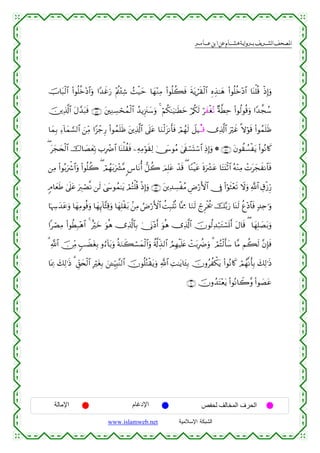 المصحف الشريف برواية هشام عن ابن عامر
وَإِذْ قُلْنَا ٱدْخُلُوا۟ هَٰذِهِ ٱلْقَرْيَةَ فَكُلُوا۟ مِنْهَا حَيْثُ شِئْتُمْ رَغَدًا وَٱدْخُلُوا۟ ٱلْبَابَ
سُجَّدًا وَقُولُوا۟ حِطَّةٌ تُغْفَرْ لَكُمْ خَطَٰيَٰكُمْ ۚ وَسَنَزِيدُ ٱلْمُحْسِنِينَ فَبَدَّلَ ٱلَّذِينَ
ظَلَمُوا۟ قَوْلًا غَيْرَ ٱلَّذِى قِيلَ لَهُمْ فَأَنزَلْنَا عَلَى ٱلَّذِينَ ظَلَمُوا۟ رِجْزًا مِّنَ ٱلسَّمَآءِ بِمَا
كَانُوا۟ يَفْسُقُونَ ۞ وَإِذِ ٱسْتَسْقَىٰ مُوسَىٰ لِقَوْمِهِۦ فَقُلْنَا ٱضْرِب بِّعَصَاكَ ٱلْحَجَرَ ۖ
فَٱنفَجَرَتْ مِنْهُ ٱثْنَتَا عَشْرَةَ عَيْنًا ۖ قَدْ عَلِمَ كُلُّ أُنَاسٍ مَّشْرَبَهُمْ ۖ كُلُوا۟ وَٱشْرَبُوا۟ مِن
رِّزْقِ ٱللَّهِ وَلَا تَعْثَوْا۟ فِى ٱلْأَرْضِ مُفْسِدِينَ وَإِذْ قُلْتُمْ يَٰمُوسَىٰ لَن نَّصْبِرَ عَلَىٰ طَعَامٍ
وَٰحِدٍ فَٱدْعُ لَنَا رَبَّكَ يُخْرِجْ لَنَا مِمَّا تُنۢبِتُ ٱلْأَرْضُ مِنۢ بَقْلِهَا وَقِثَّآئِهَا وَفُومِهَا وَعَدَسِهَا
وَبَصَلِهَا ۖ قَالَ أَتَسْتَبْدِلُونَ ٱلَّذِى هُوَ أَدْنَىٰ بِٱلَّذِى هُوَ خَيْرٌ ۚ ٱهْبِطُوا۟ مِصْرًا
فَإِنَّ لَكُم مَّا سَأَلْتُمْ ۗ وَضُرِبَتْ عَلَيْهِمُ ٱلذِّلَّةُ وَٱلْمَسْكَنَةُ وَبَآءُو بِغَضَبٍ مِّنَ ٱللَّهِ ۗ
ذَٰلِكَ بِأَنَّهُمْ كَانُوا۟ يَكْفُرُونَ بِـَٔايَٰتِ ٱللَّهِ وَيَقْتُلُونَ ٱلنَّبِيِّـۧنَ بِغَيْرِ ٱلْحَقِّ ۗ ذَٰلِكَ بِمَا
عَصَوا۟ وَّكَانُوا۟ يَعْتَدُونَ
الحرف المخالف لحفص الإدغام الإمالة
الشبكة الإسلامية www.islamweb.net